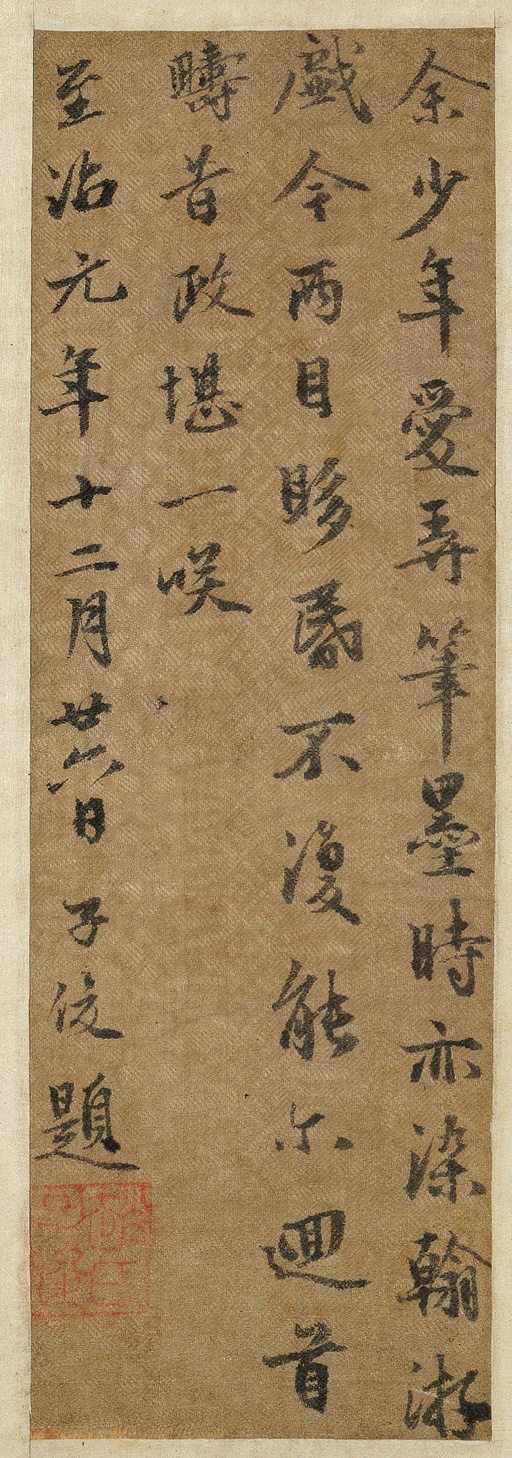 余少年愛弄筆墨時亦染翰游
戲今兩目眵昏不復能尓迴首
疇昔政堪一咲
至治元年十二月廿六日子俊題